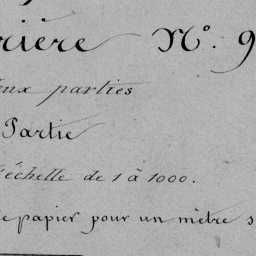 rière N.º 9
eux parties
Partie
échelle de 1 à 1000.
e papier pour un mètre s